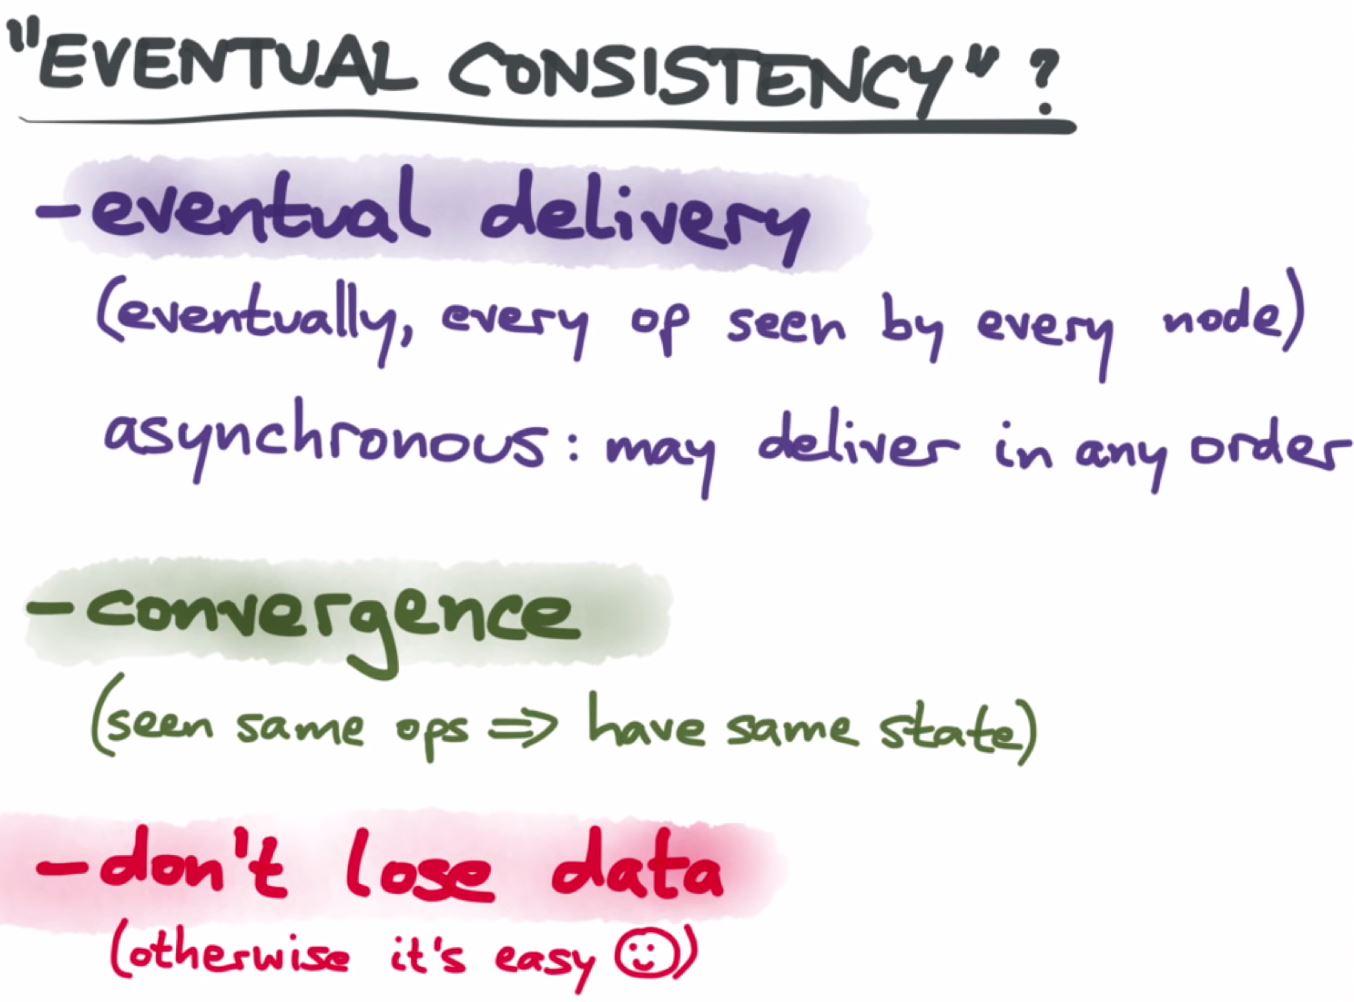 "EVENTUAL CONSISTENCY" ?
- eventual delivery
(eventually, every op seen by every node)
asynchronous: may deliver in any order
- convergence
(seen same ops => have same state)
- don't lose data
(otherwise it's easy ☺)